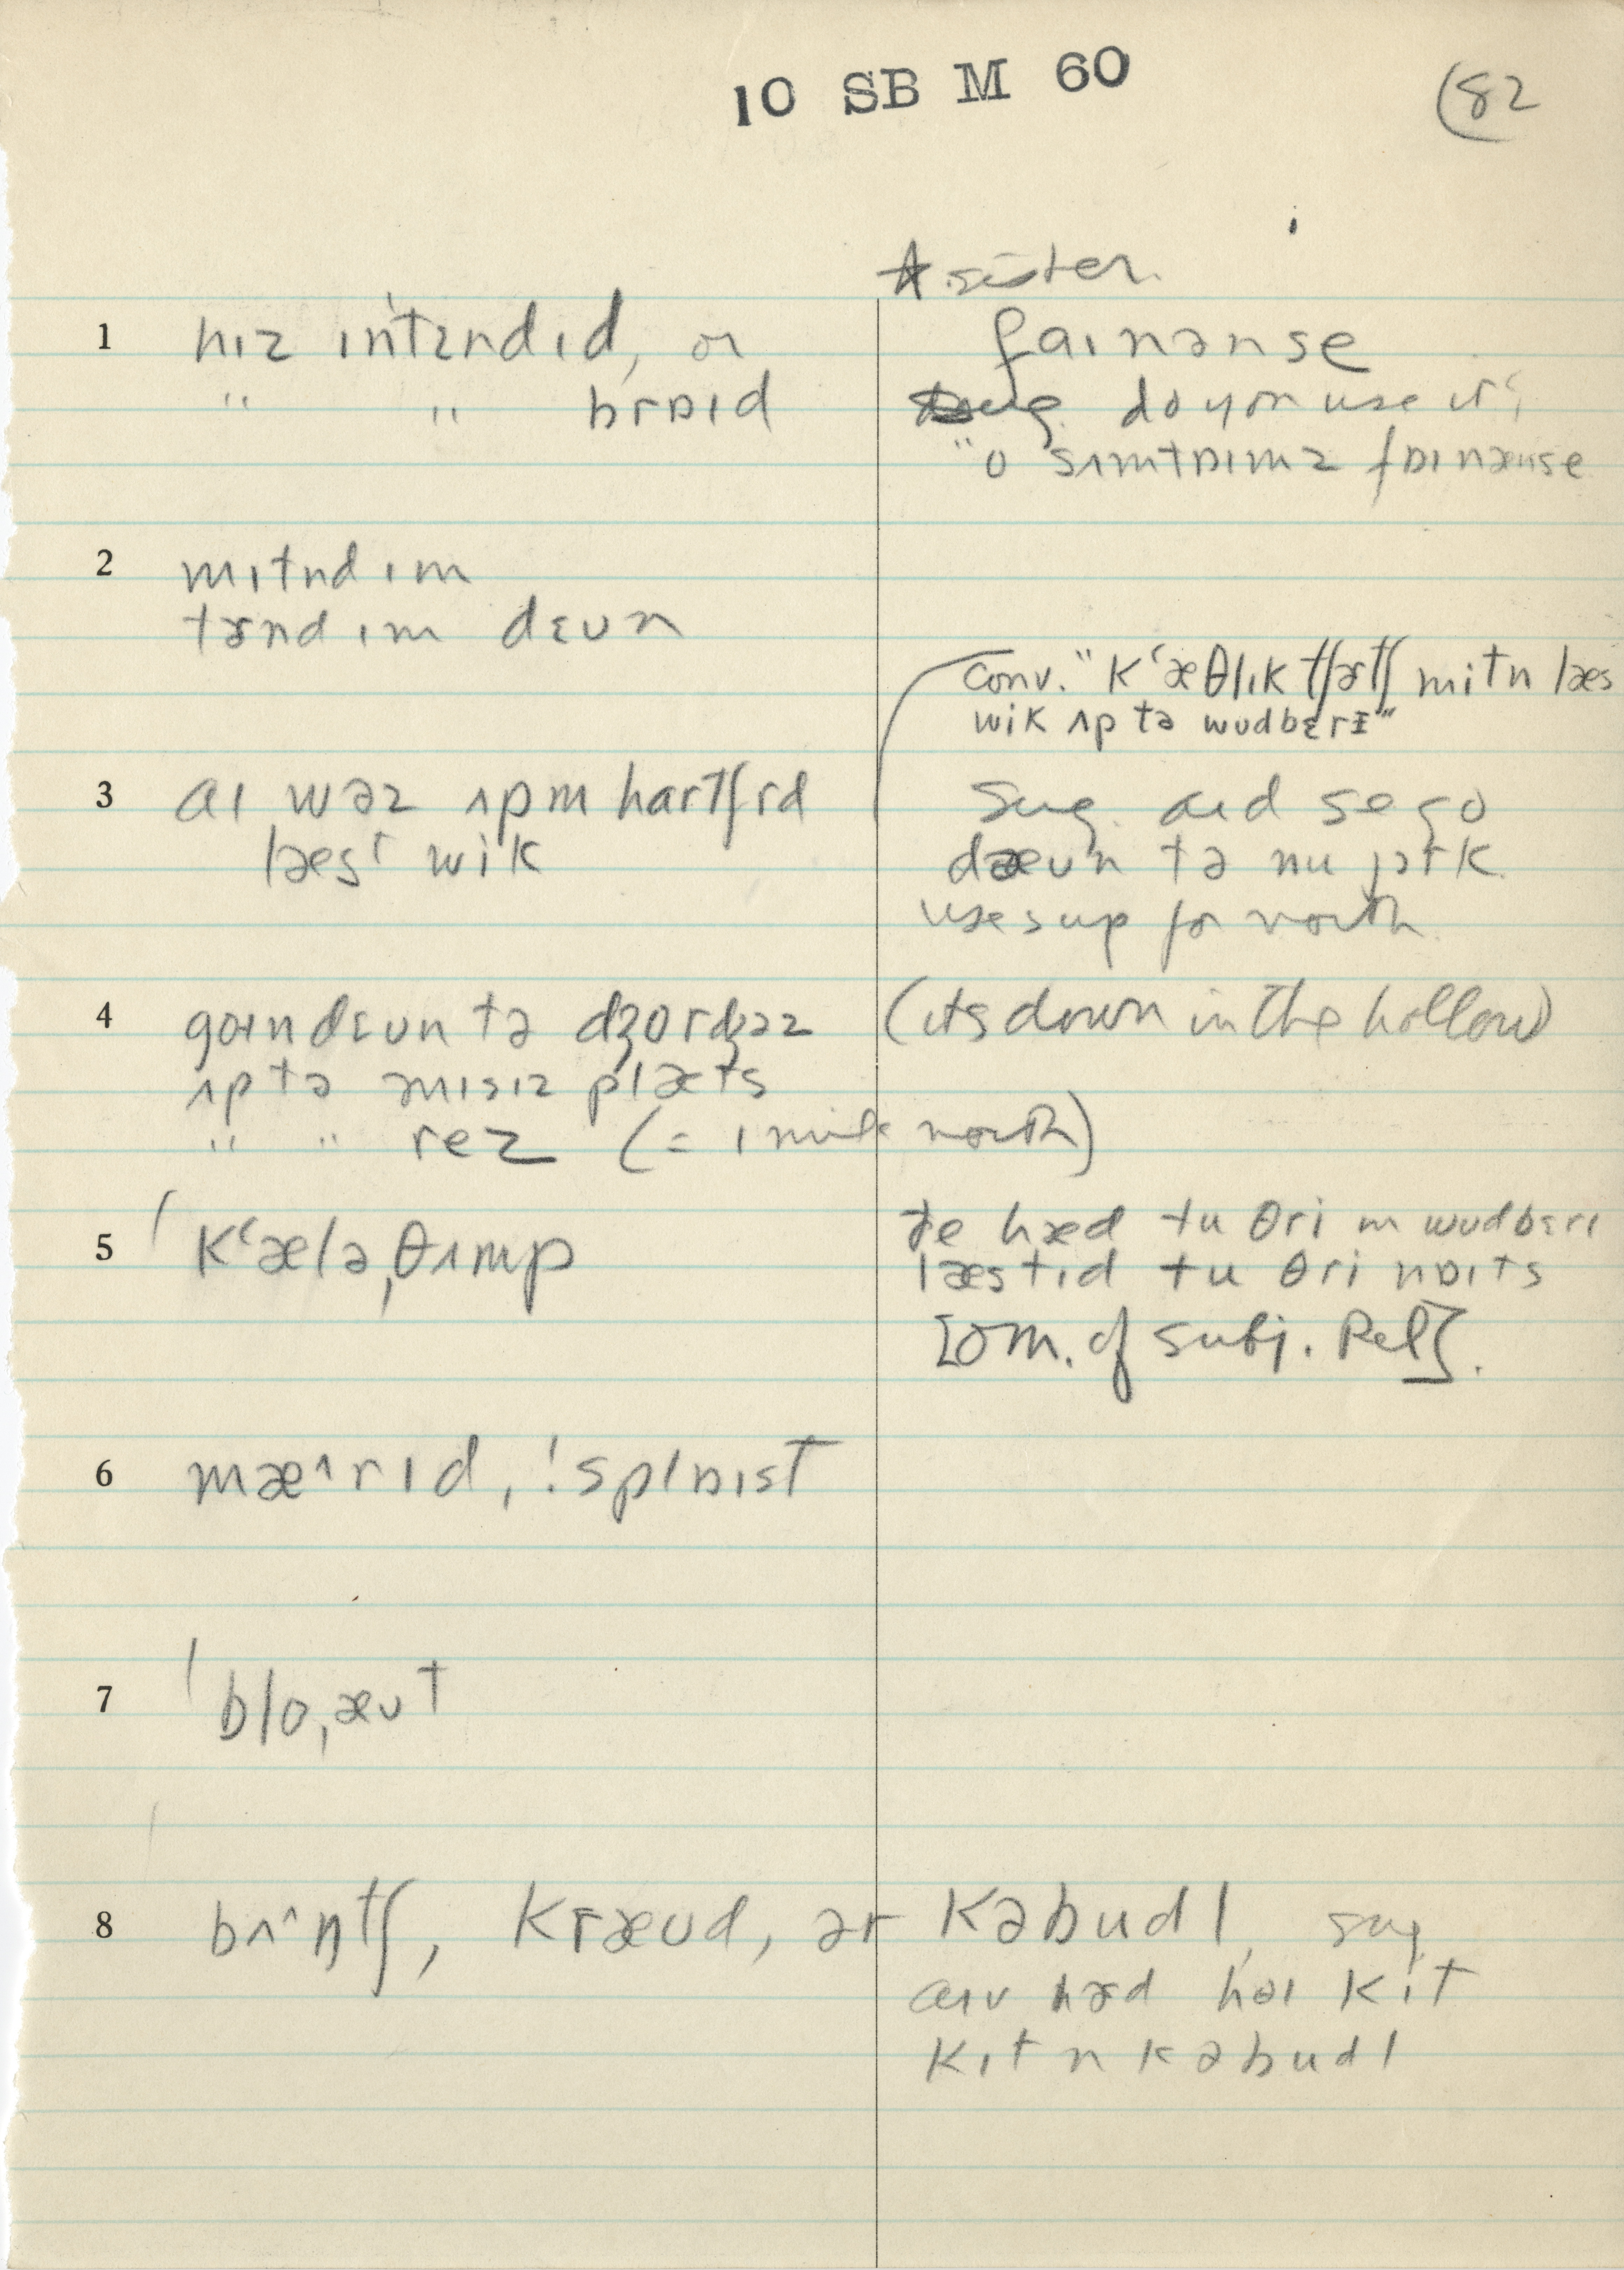 10 SB M 60
(82
* sister.
1 hɪz ɪn'tɛndɪd, or
" " brɒɪd
faɪnanse
sug. do you use it?
"o sʌmtɒɪmz fɒɪnanse
2 mɪtnd ɪm
tɝnd ɪm dɛʊn
conv. "kʻæθlɪk tʃɝtʃ mitn læs
wik ʌp tə wudbɛrɪ"
3 aɪ wəz ʌpm hartfrd
læst wik
sug. aɪd se go
dæʊn tə nu jɔrk
uses up for north
4 goɪn dɛʊn tə dʒordʒəz
ʌp tə mɪsɪz plæts
" " rez (= 1 mile north)
(its down in the hollow)
5 'kʻælə,θʌmp
ðe hæd tu θri ɪn wudbɛrɪ
læstɪd tu θri nɒɪts
[om. of subj. Rel].
6 mæ^rɪd, 'splɒɪst
7 'blo,æʊt
8 bʌ^ntʃ, kræʊd, ər kəbudl, sug
aɪv hɝd hol kɪt
kɪt n kəbudl